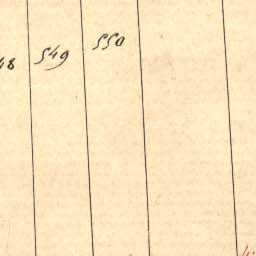 48 549 550